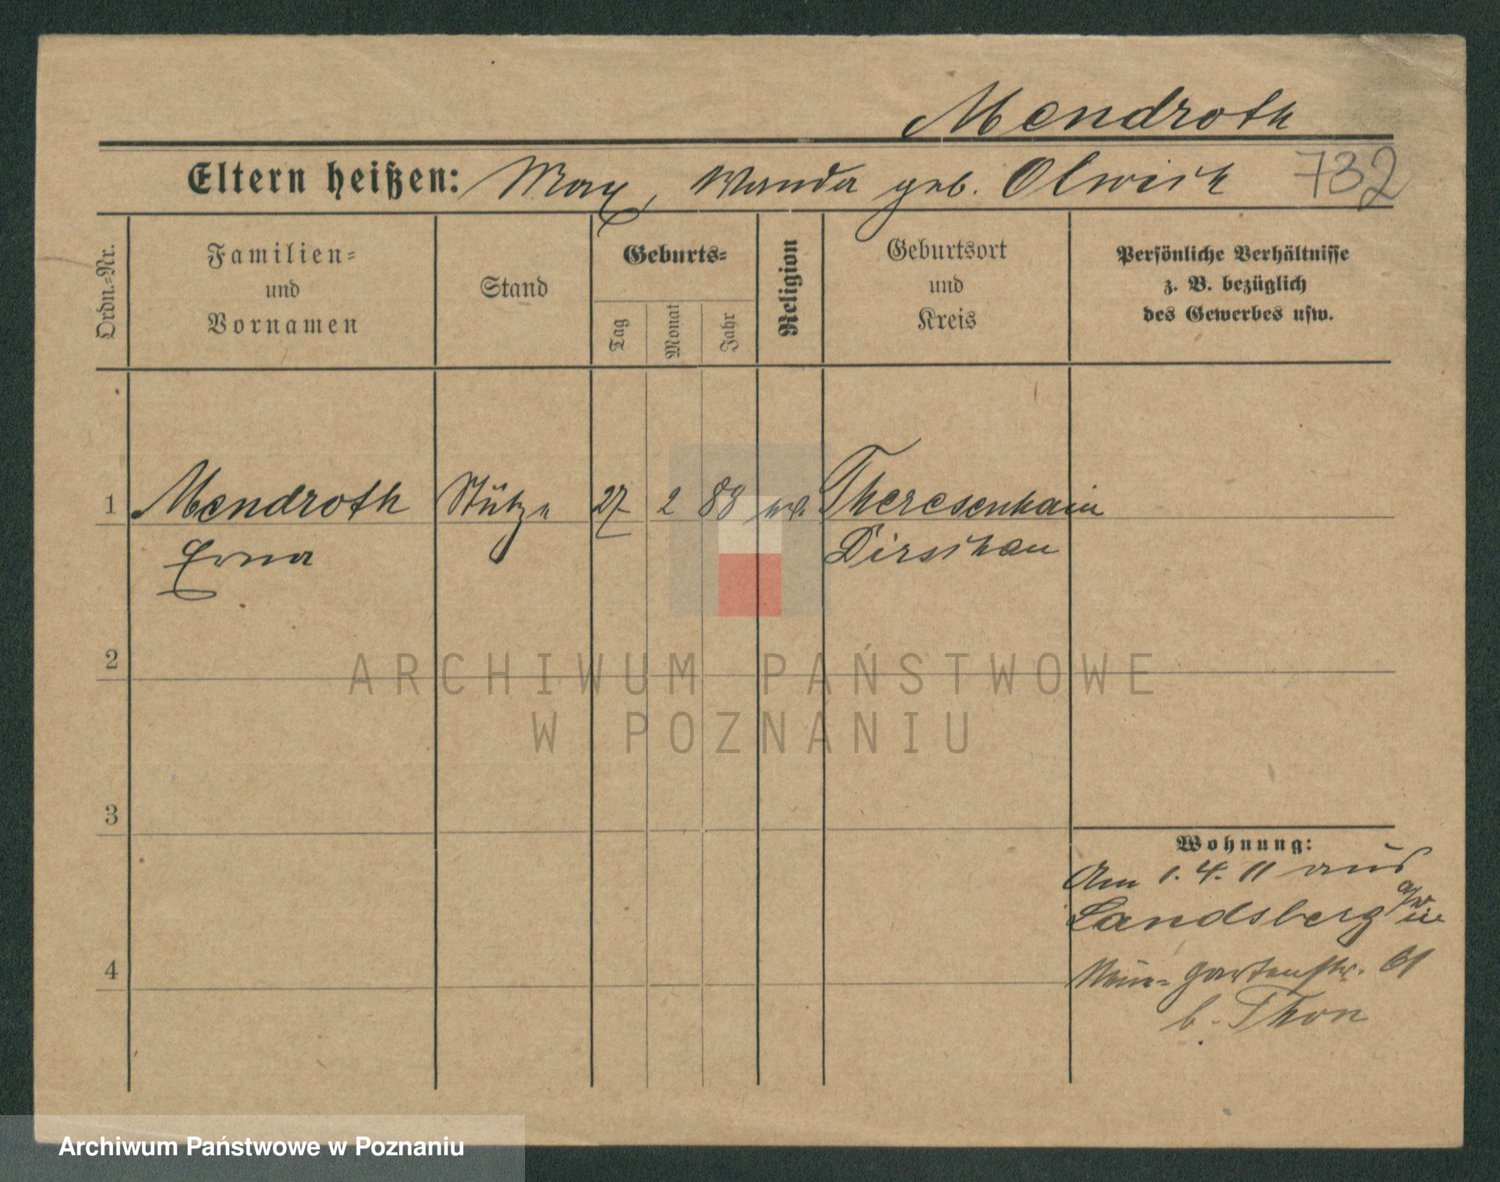 Mendroth
Eltern heißen: Max, Wanda geb. Olwisk 732
Ordn.-Nr.
Familien-
und
Vornamen
Stand
Geburts-
Tag
Monat
Jahr
Religion
Geburtsort
und
Kreis
Persönliche Verhältnisse
z. B. bezüglich
des Gewerbes usw.
1 Mendroth Stütze 27 2 88 Theresenhain
Erna Dirschau
ARCHIWUM PAŃSTWOWE
W POZNANIU
2
3
Wohnung:
Am 1. 4. 11 aus
Landsberg a/W in
4
Gartenstr. 61
b. Thon
Archiwum Państwowe w Poznaniu